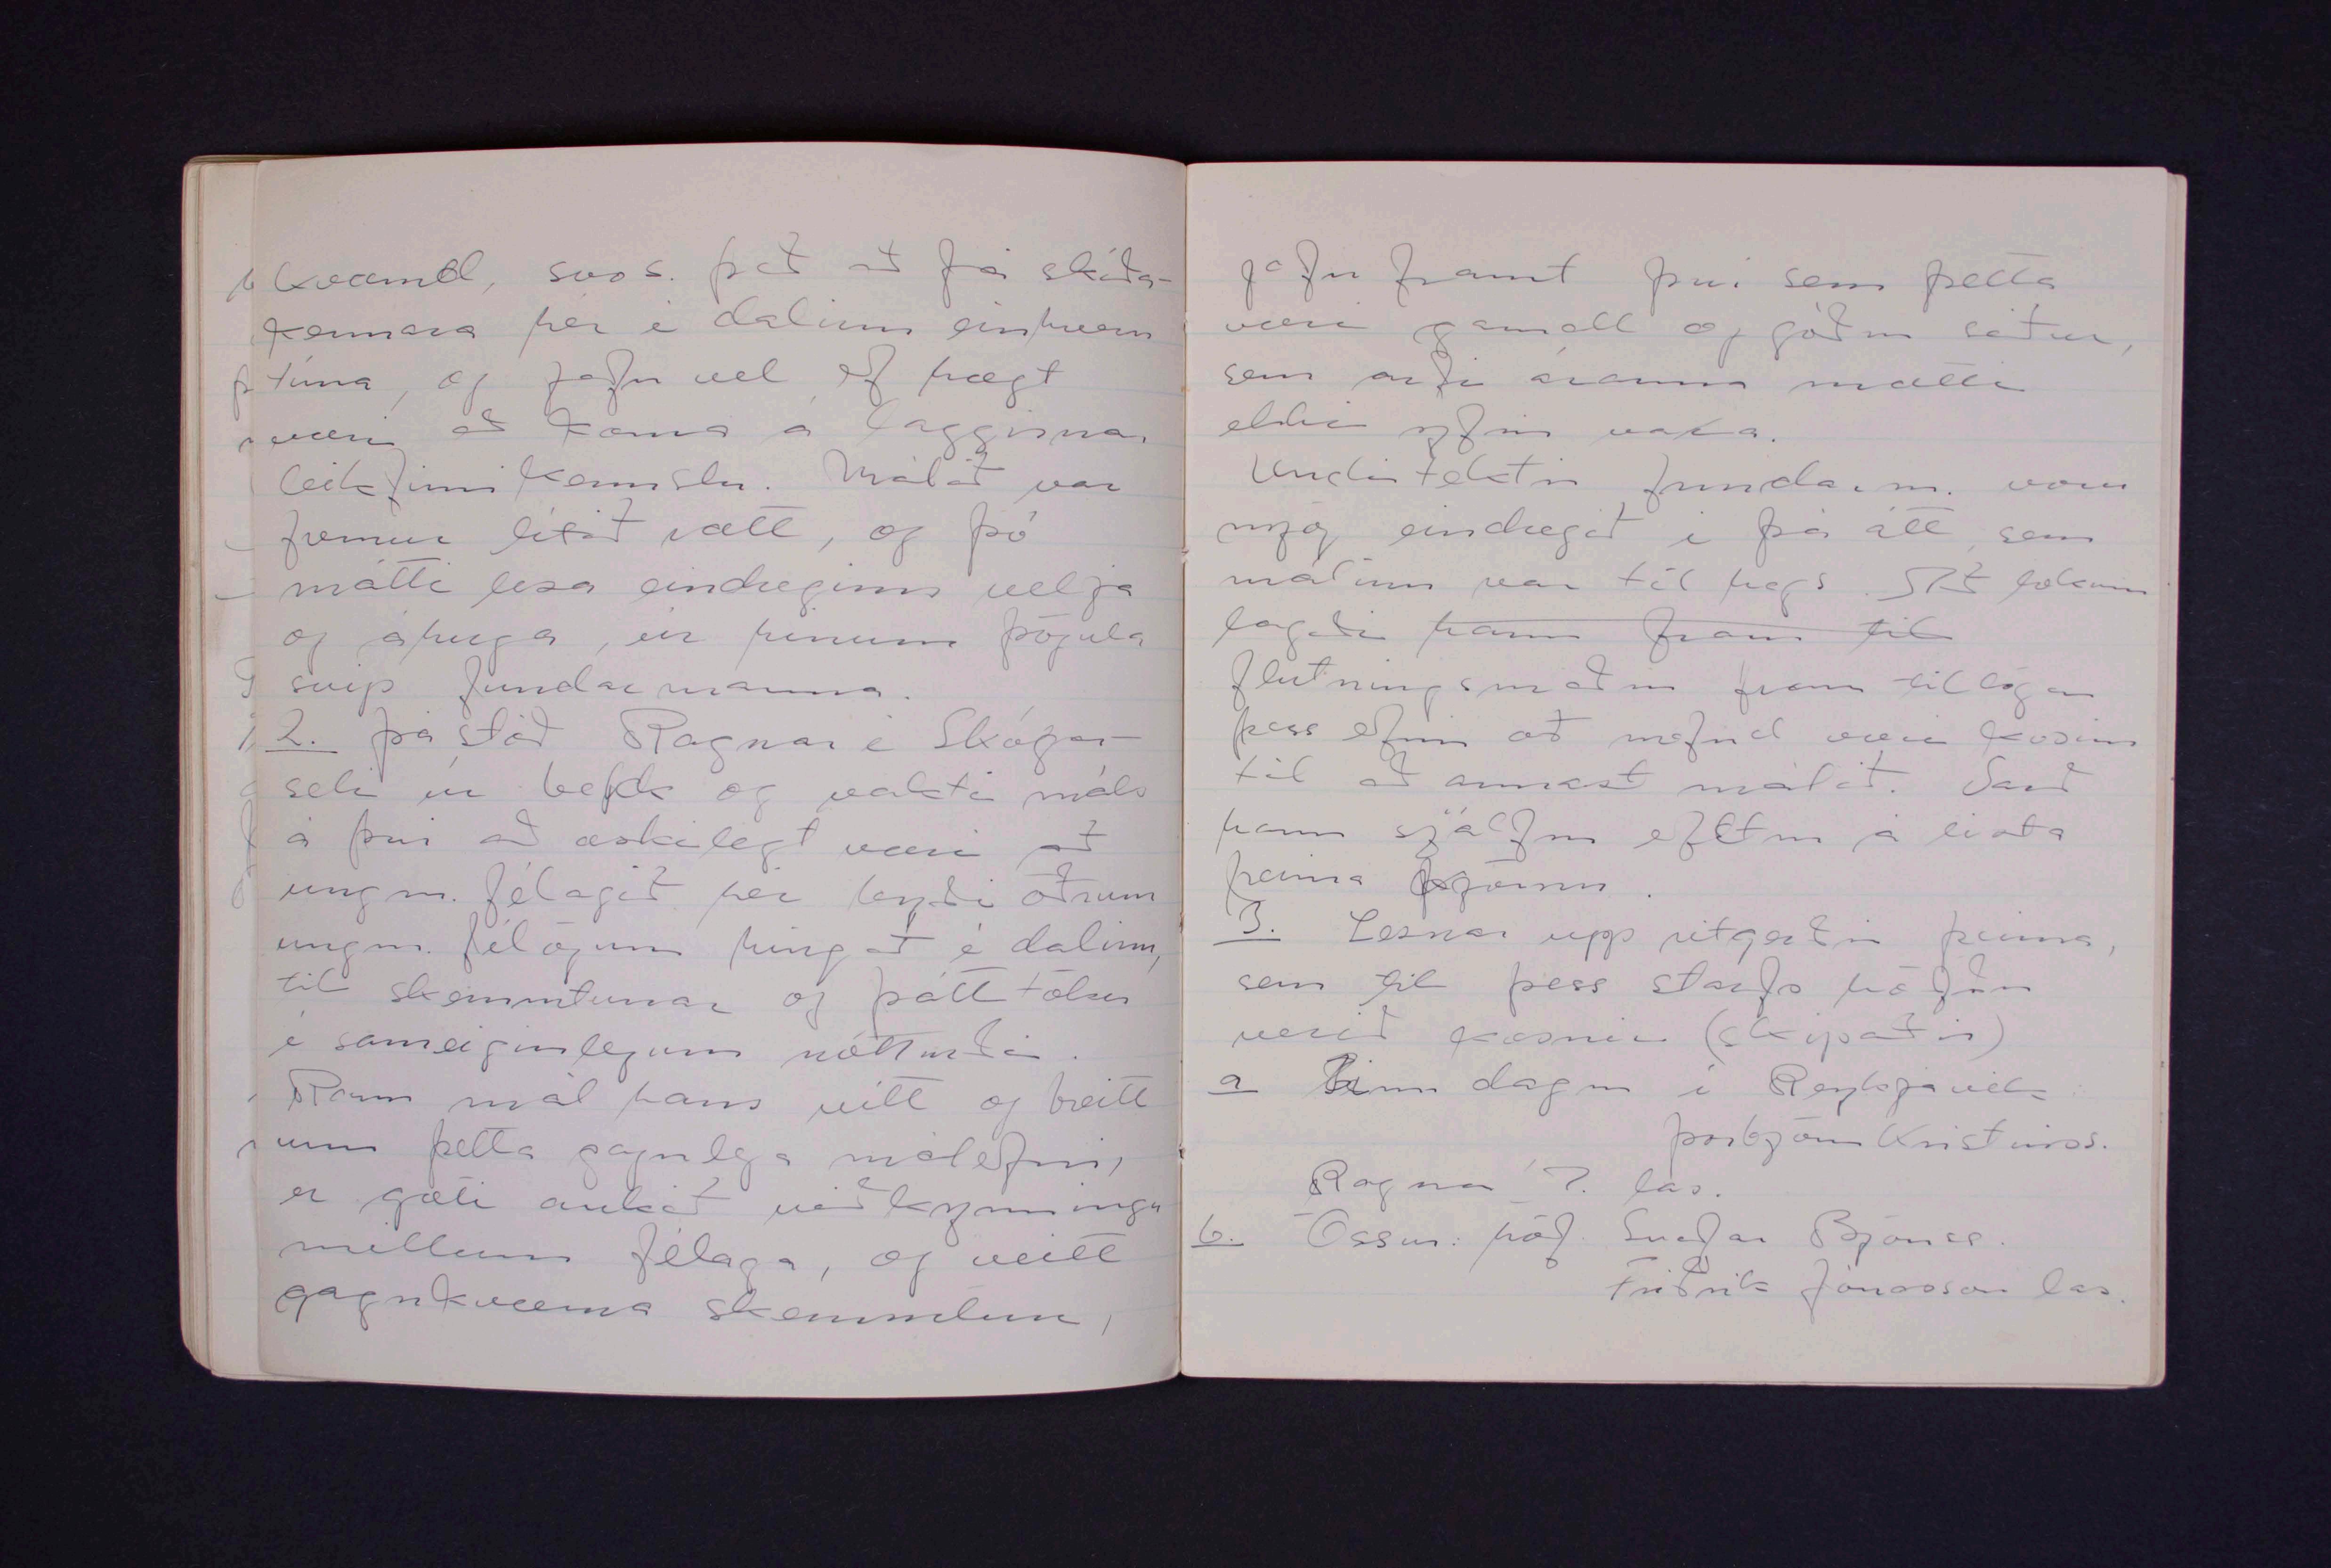 kvæmd, svo s. það að fá skíða-
kennara hér í dalinn einhvern
tíma, og jafn vel ef hægt
væri að koma á laggirnar
leikfimi kennslu. Málið var
fremur lítið rætt, og þó
mátti lesa eindreginn vilja
og áhuga, úr hinum þögula
svip fundarmanna.
2. Þá stóð Ragnar í Skógar-
seli úr bekk og vakti máls
á því að æskilegt væri að
ungm. félagið hér byði öðrum
ungm. félögum hingað í dalinn,
til skemmtunar og þátttöku
í sameiginlegum
Rann mál hans vítt og breitt
um þetta gagnlega málefni,
er gæti aukið viðkynningu
millum félaga, og veitt
gagnkvæma skemmtun,
jafn framt því sem þetta
væri gamall og góður siður,
sem arfi áranna mætti
ekki yfir vaxa.
Undirtektir fundarm. voru
mjög eindregið í þá átt sem
málinu var til hags. Að lokum
lagði hann fram til
flutningsmaður fram tillögu
þess efnis að nefnd væri kosin
til að annast málið. Varð
hann sjálfur efstur á lista
þeirra kjörnu.
3. Lesnar upp ritgerðir þeirra,
sem til þess starfs höfðu
verið kosnir (skipaðir)
a Einn dagur í Reykjavík
Þorbjörn Kristinss.
Ragnar J. las.
b. Össur: höf. Svafar Björnss.
Friðrik Jónasson las.